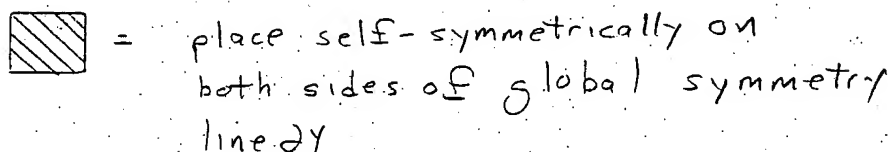 = place self-symmetrically on
both sides of global symmetry
line